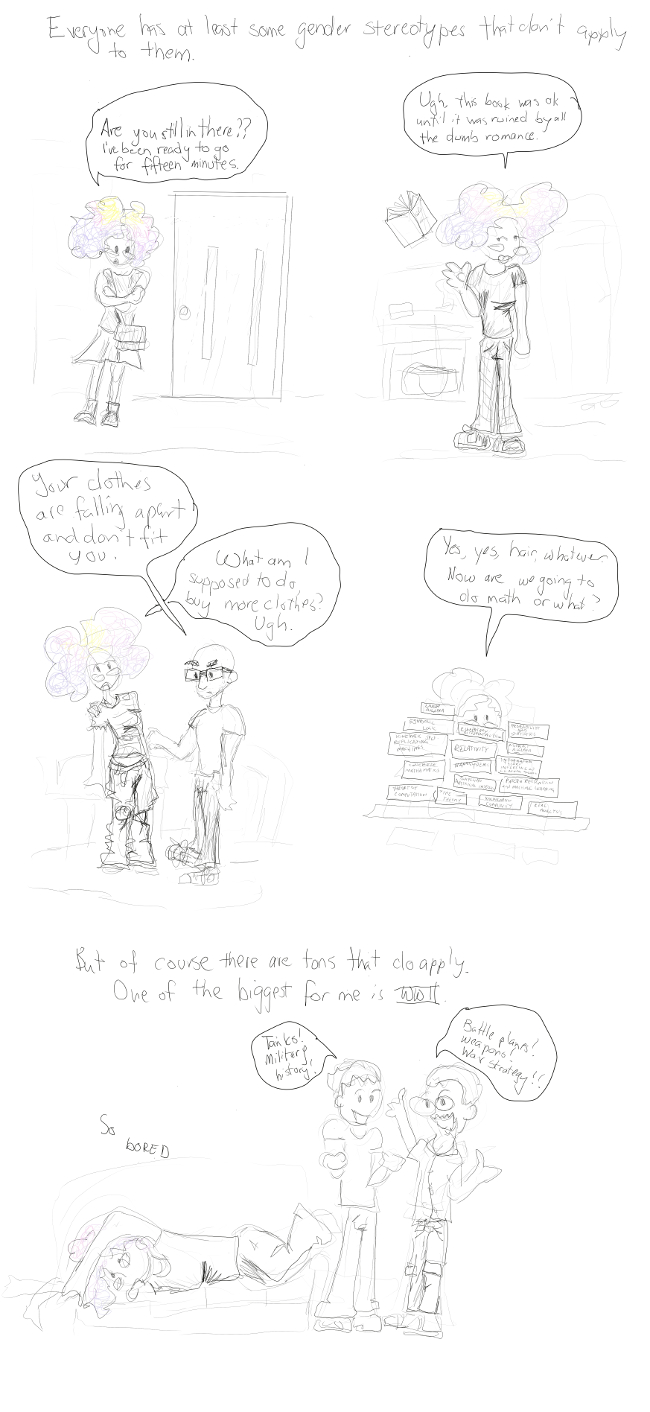 Everyone has at least some gender stereotypes that don't apply
to them.
Are you still in there??
I've been ready to go
for fifteen minutes.
Ugh, this book was ok
until it was ruined by all
the dumb romance.
Your clothes
are falling apart
and don't fit
you.
What am I
supposed to do,
buy more clothes?
Ugh.
Yes, yes, hair, whatever.
Now are we going to
do math or what?
RELATIVITY
But of course there are tons that do apply.
One of the biggest for me is WWII.
Tanks!
Military
history!
Battle planes!
Weapons!
War strategy!!
So
BORED